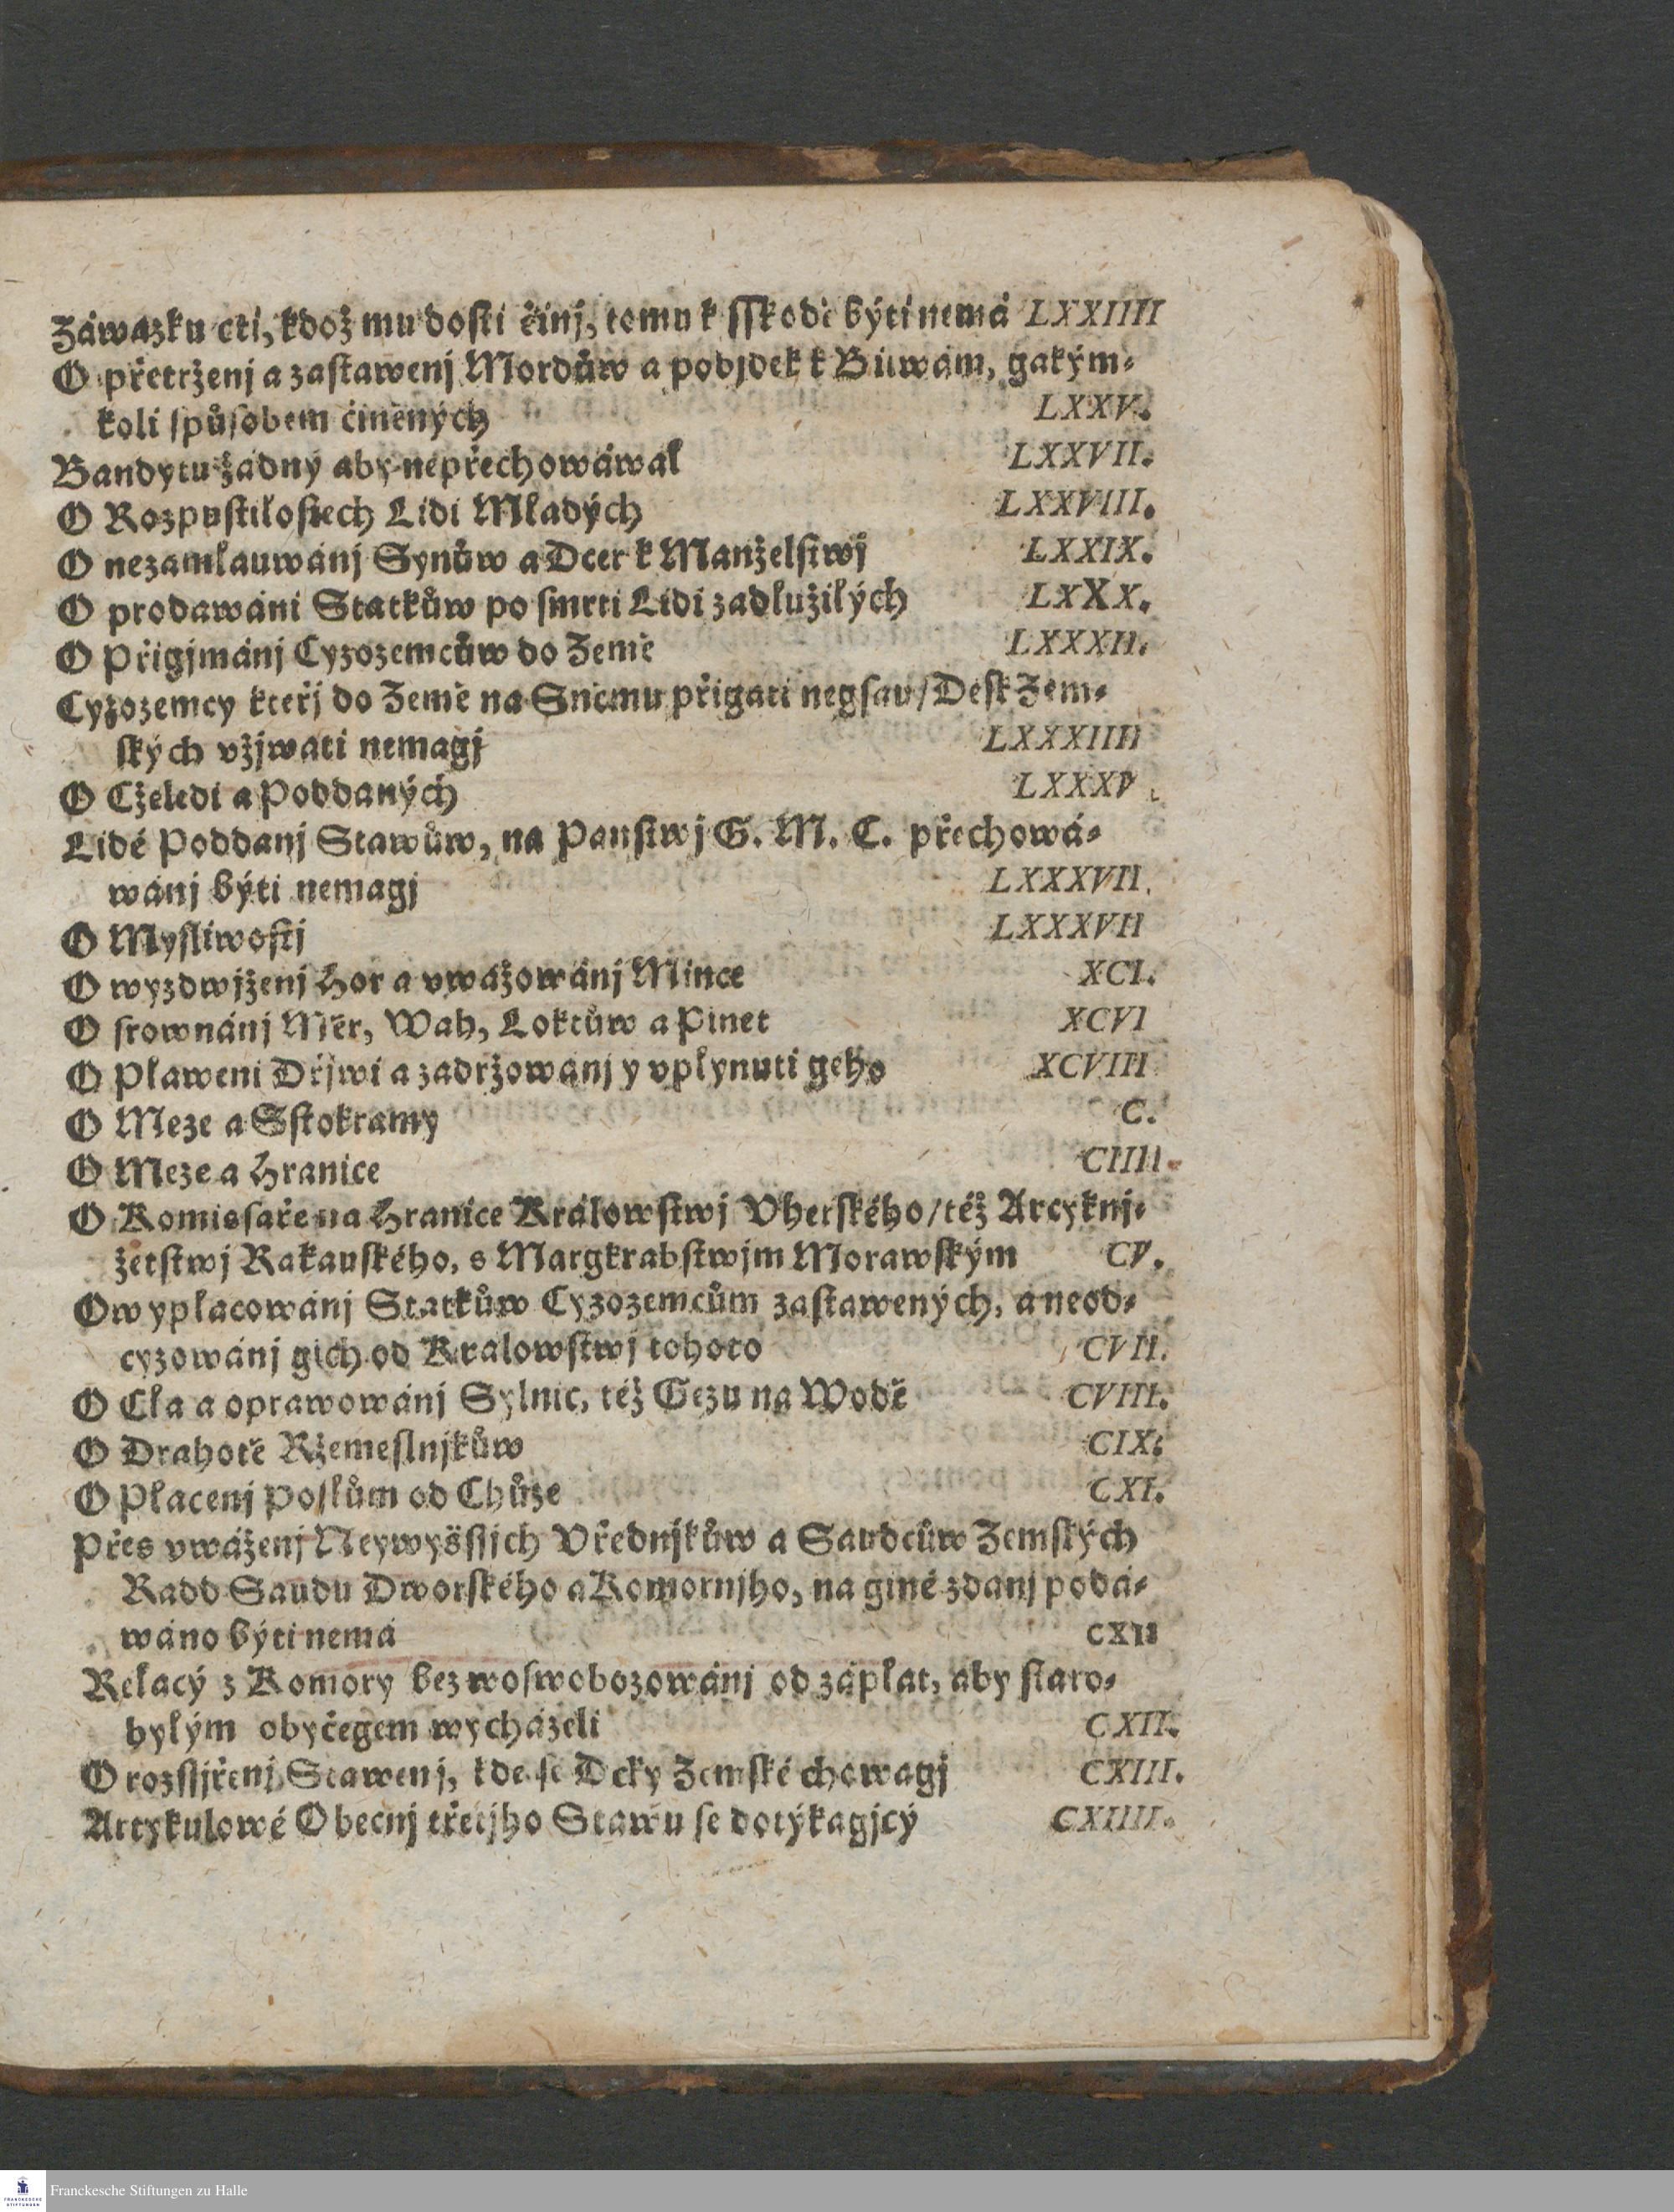 Záwazku cti, kdož mu dosti činj, tomu k sſkodě býti nemá LXXIIII
O přetrženj a zaſtawenj Mordůw a pobjdek k Bitwám, gakým⸗
koli ſpůſobem činěných LXXV.
Bandytu žádný aby nepřechowáwal LXXVII.
O Rozpuſtiloſtech Lidi Mladých LXXVIII.
O nezamlauwánj Synůw a Dcer k Manželſtwj LXXIX.
O prodawáni Statkůw po ſmrti Lidi zadlužilých LXXX.
O Přigjmánj Cyzozemcůw do Země LXXXII.
Cyzozemcy kteřj do Země na Sněmu přigati negſau/ Deſk Zem⸗
ſkých vžjwati nemagj LXXXIIII
O Cželedi a Poddaných LXXXV.
Lidé Poddanj Stawůw, na Panſtwj G. M. C. přechowá⸗
wánj býti nemagj LXXXVII.
O Myſliwoſtj LXXXVII
O wyzdwiženj Hor a vwažowánj Mince XCI.
O ſrownánj Měr, Wah, Loktůw a Pinet XCVI
O Plaweni Dřjwi a zadržowánj y vplynuti geho XCVIII
O Meze a Sſtokramy C.
O Meze a Hranice CIIII.
O Komisſaře na Hranice Králowſtwj Vherſkého/ též Arcyknj⸗
žetſtwj Rakauſkého, s Margkrabſtwjm Morawſkým CV.
O wyplacowánj Statkůw Cyzozemcům zaſtawených, a neod⸗
cyzowánj gich od Kralowſtwj tohoto CVII.
O Cla a oprawowánj Sylnic, též Gezu na Wodě CVIII.
O Drahotě Ržemeſlnjkůw CIX.
O Placenj Poſlům od Chůze CXI.
Přes vwáženj Neywysſſjch Vřednjkůw a Saudcůw Zemſkých
Radd Saudu Dworſkého a Komornjho, na giné zdanj podá⸗
wáno býti nemá CXII
Relacý z Komory bez woſwobozowánj od záplat, aby ſtaro⸗
bylým obyčegem wycházeli CXII.
O rozſſjřenj Stawenj, kde ſe Dcky Zemſké chowagj CXIII.
Artykulowé Obecnj třetjho Stawu ſe dotýkagjcý CXIIII.
Franckesche Stiftungen zu Halle
FRANCKESCHE
STIFTUNGEN